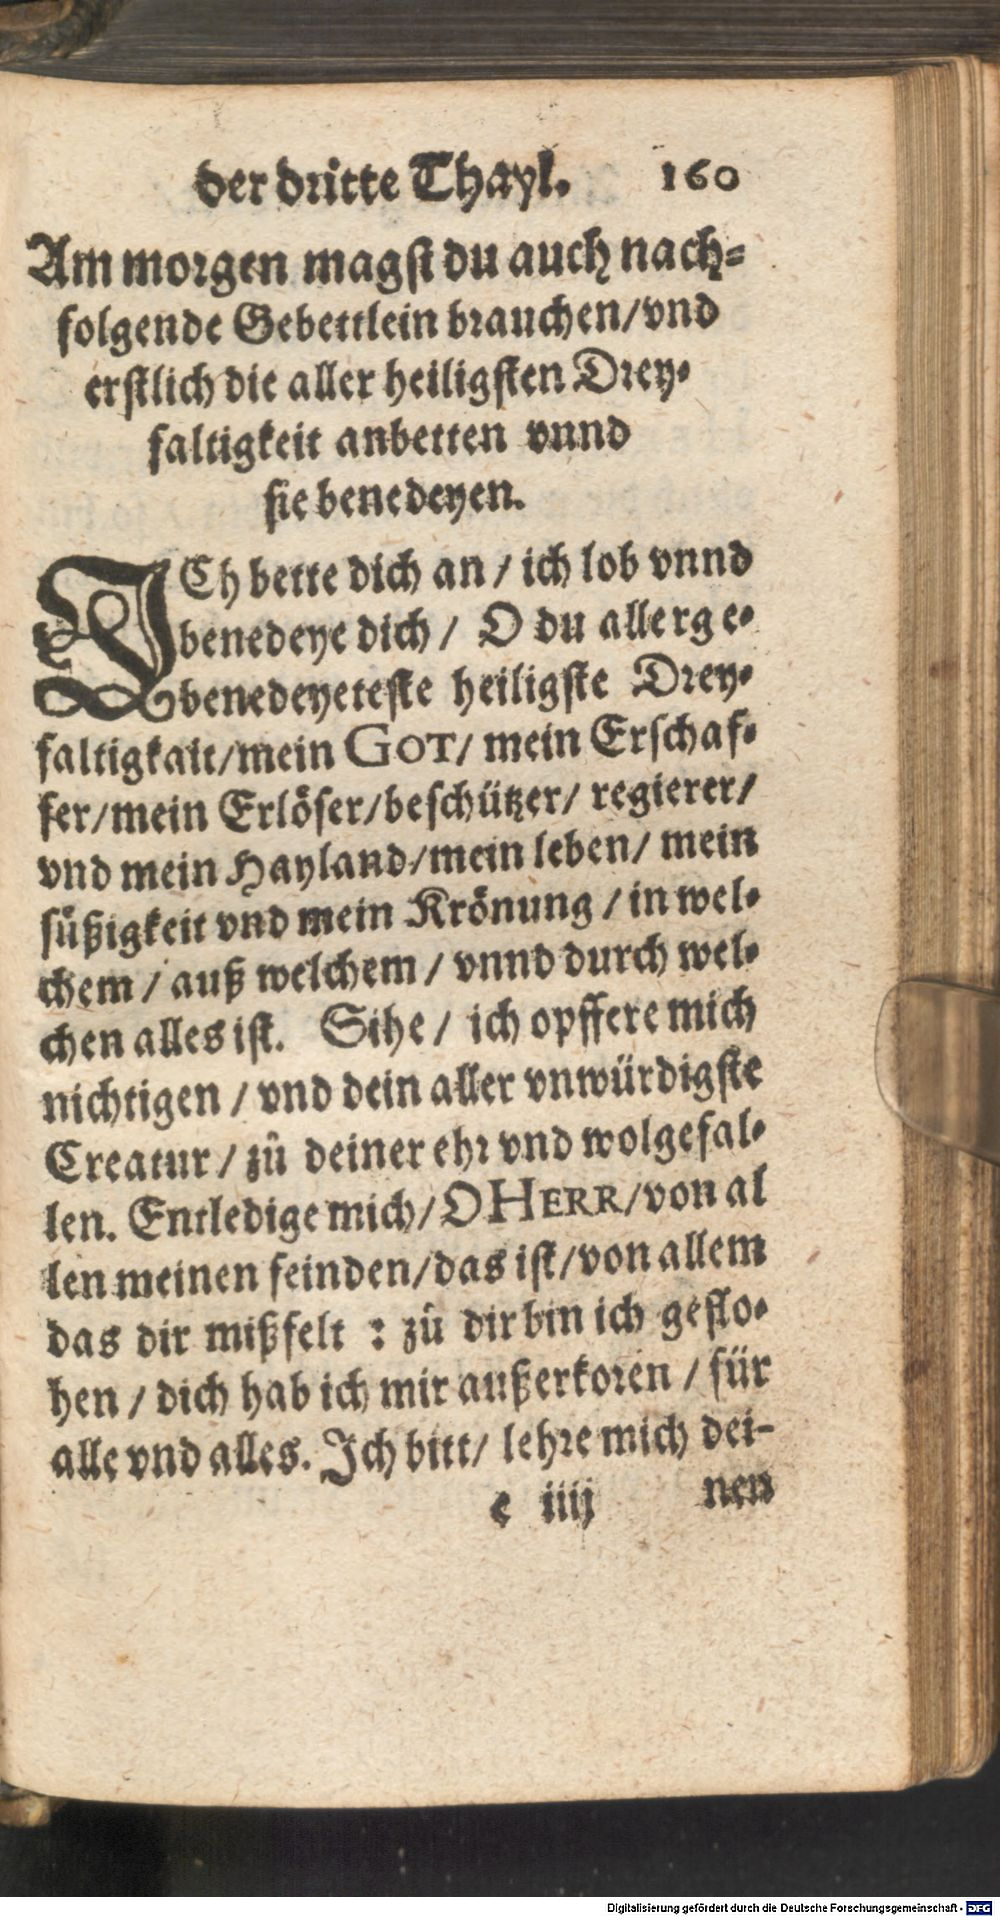 der dritte Thayl. 160
Am morgen magst du auch nach-
folgende Gebettlein brauchen/vnd
erstlich die aller heiligsten Drey-
faltigkeit anbetten vnnd
sie benedeyen.
ICh bette dich an / ich lob vnnd
benedeye dich / O du allerge-
benedeyeteste heiligste Drey-
faltigkait/mein GOT/ mein Erschaf-
fer/mein Erlöser/beschützer/ regierer/
vnd mein Hayland/mein leben/ mein
süßigkeit vnd mein Krönung / in wel-
chem / auß welchem / vnnd durch wel-
chen alles ist. Sihe / ich opffere mich
nichtigen / vnd dein aller vnwürdigste
Creatur / zů deiner ehr vnd wolgefal-
len. Entledige mich/ O HERR/von al
len meinen feinden/das ist/von allem
das dir mißfelt : zů dir bin ich geflo-
hen / dich hab ich mir außerkoren / für
alle vnd alles. Ich bitt/ lehre mich dei-
e iiij nen
Digitalisierung gefördert durch die Deutsche Forschungsgemeinschaft - DFG